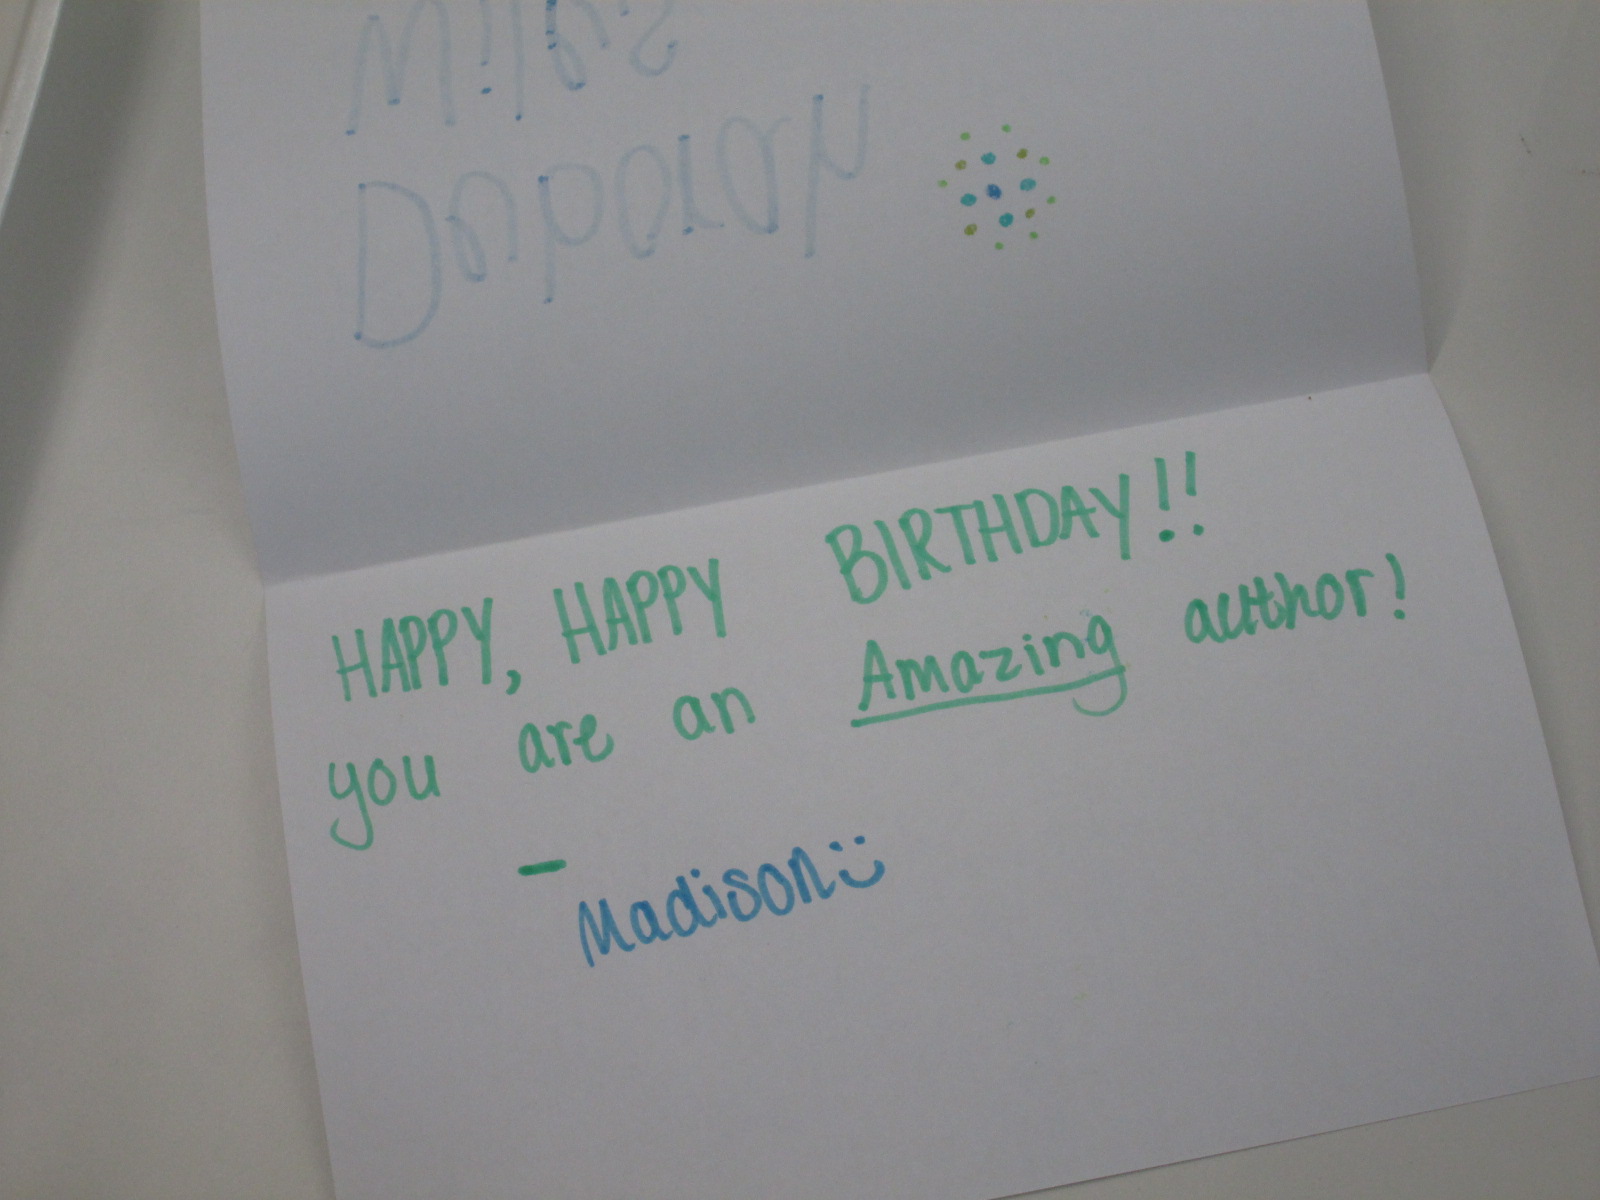 Deborah
Wiles
HAPPY, HAPPY BIRTHDAY!!
you are an Amazing author!
- Madison :)